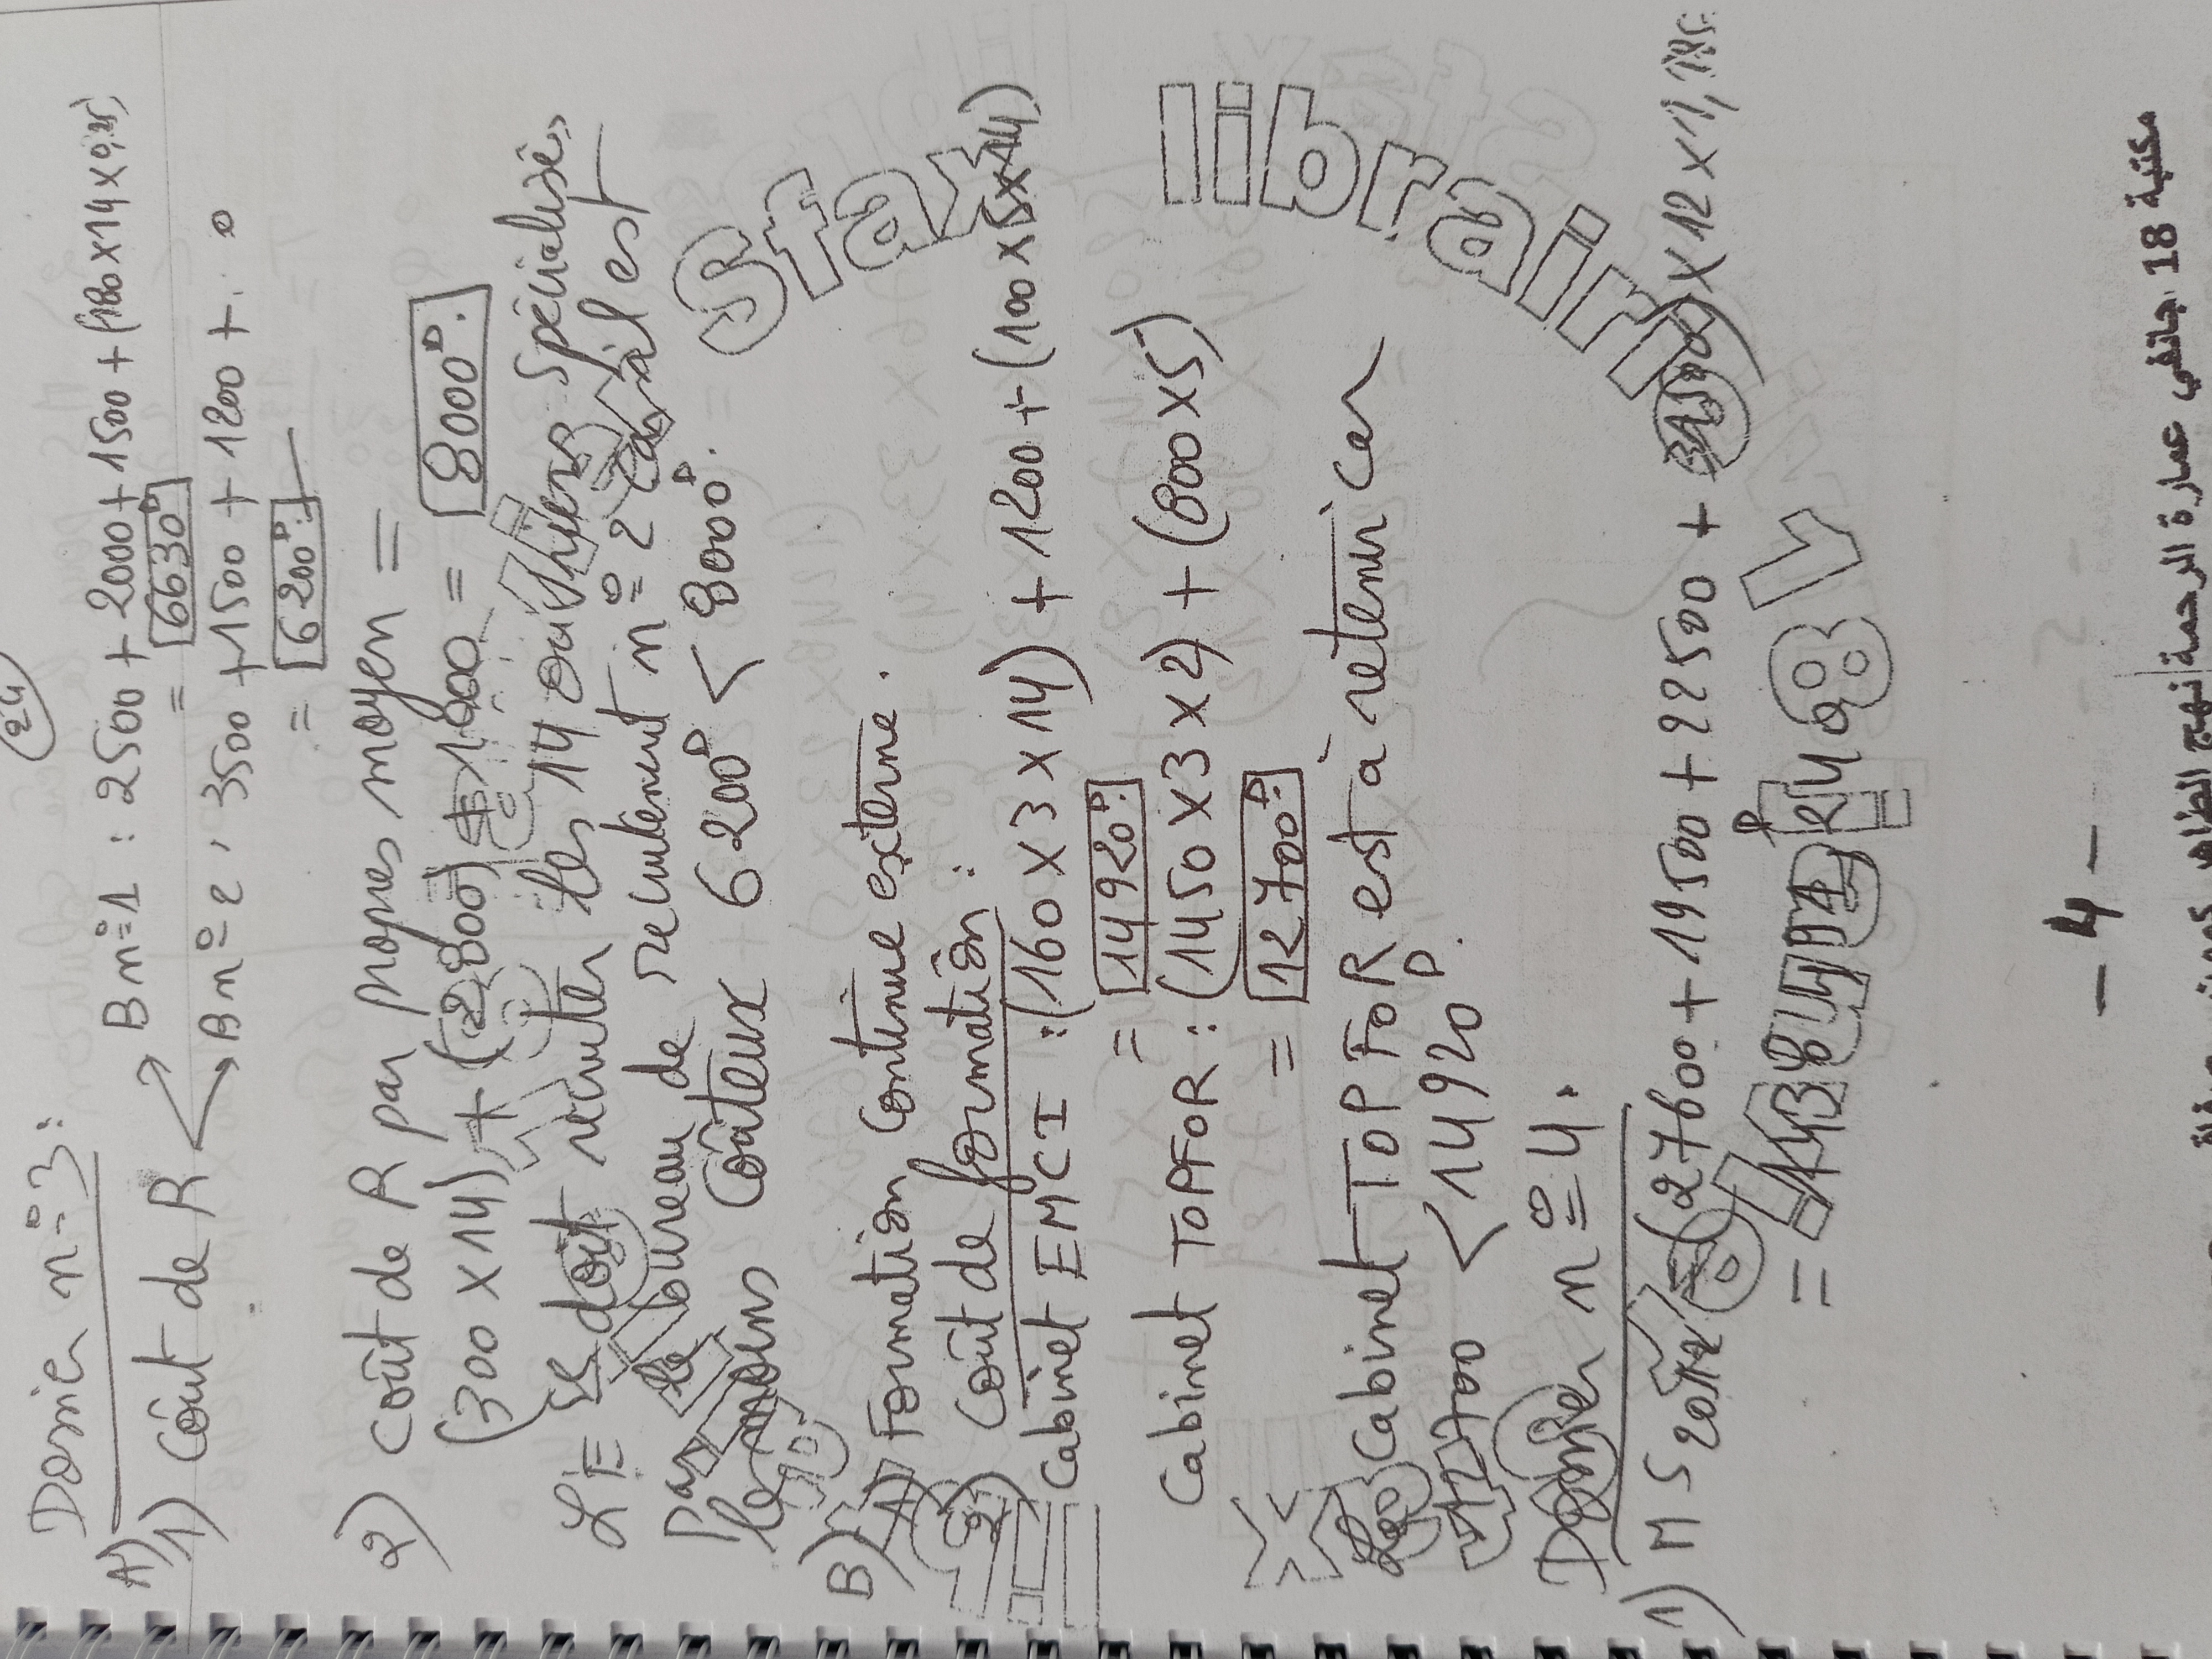 24
Dossier n° 3:
A) 1) Coût de R
Bn°1 : 2500 + 2000 + 1500 + (180 x 14 x 0,25)
= 6630D
Bn°2 : 3500 + 1500 + 1200 +
= 6200D.
2) coût de R par propres moyen =
(300 x 14) + (2800) + 1000 = 8000D.
LE doit recruter les 14 ouvriers spécialisés
par le bureau de recrutement n° 2 car il est
le moins coûteux 6200D < 8000D.
B) 1) Formation continue externe.
2) coût de formation :
Cabinet EMCI : (160 x 3 x 14) + 1200 + (100 x 5 x 14)
= 14920D.
Cabinet TOPFOR : (1450 x 3 x 2) + (800 x 5)
= 12700D.
Le Cabinet TOPFOR est à retenir car
12700 < 14920D.
Dossier n° 4.
1) MS = (27600 + 19500 + 22500 + x 12 x
=
Sfax librairie
- 4 -
مكتبة 18 جانفي عمارة الرحمة نهج الطاهر